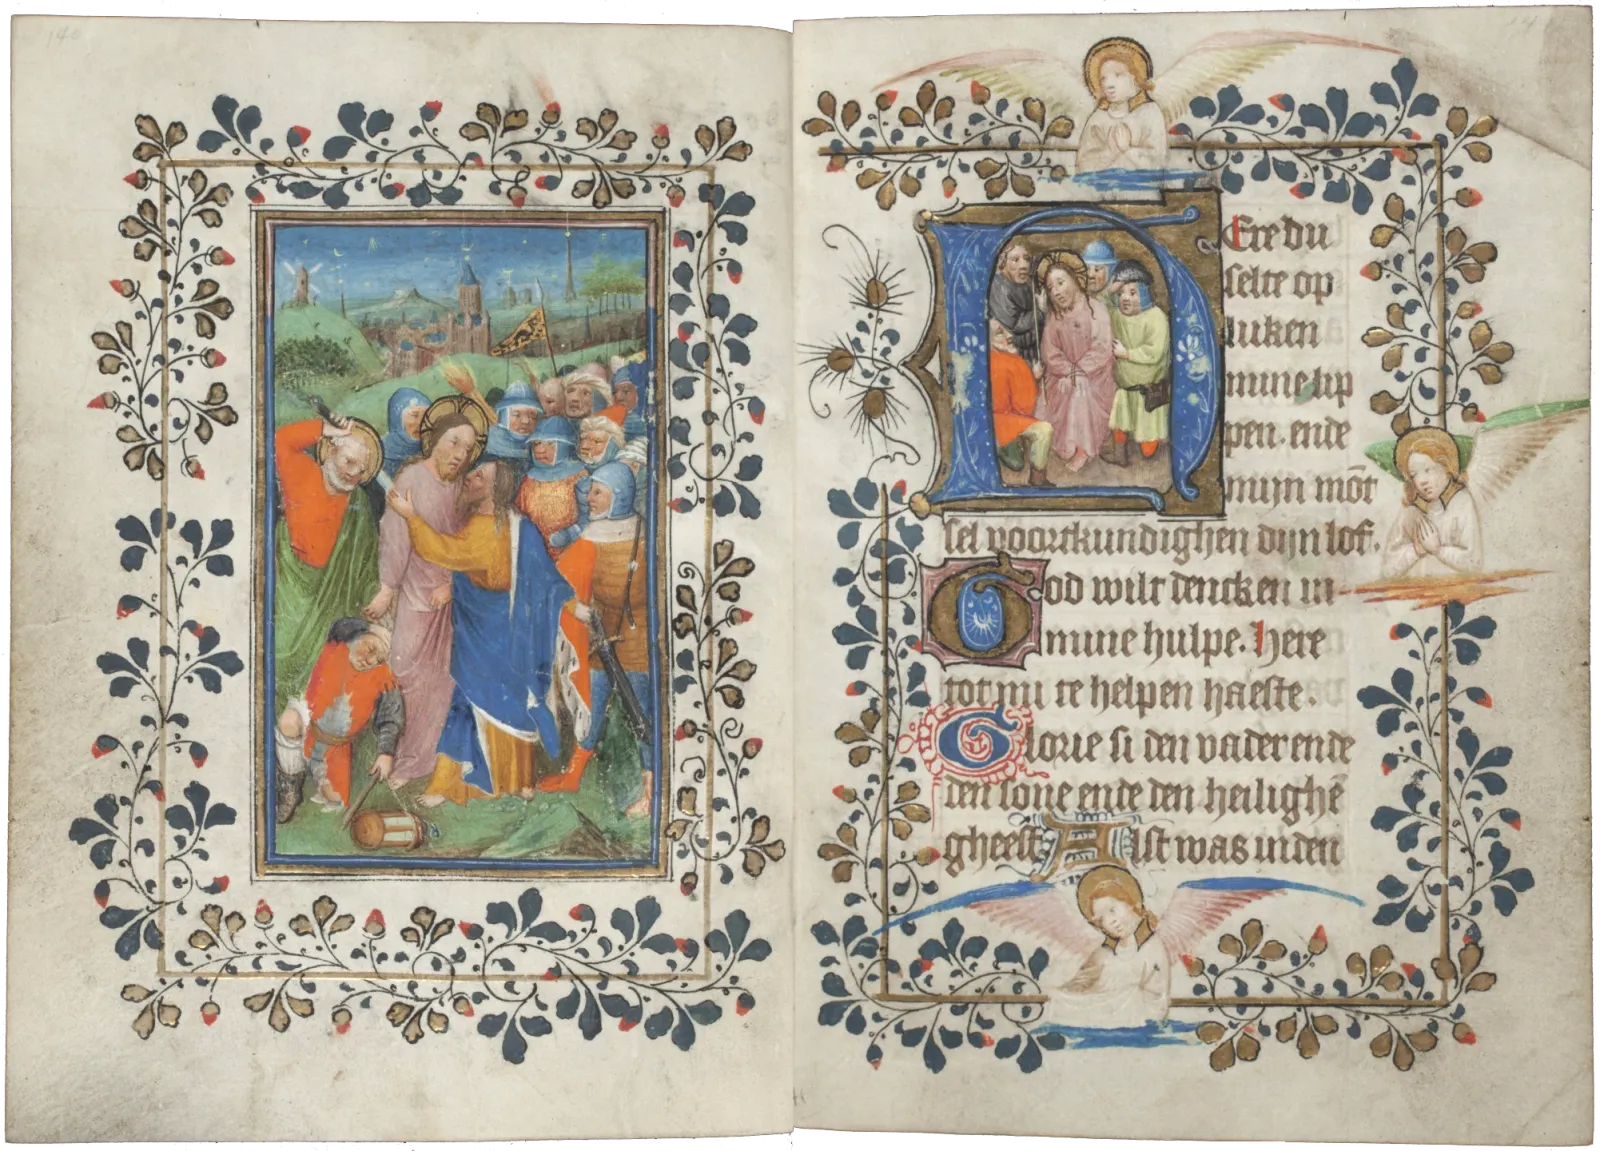 140
HEre du
selte op
luken
mine lip
pen. ende
mijn mōt
sel voortkundighen dijn lof.
God wilt dencken in
mine hulpe. Here
tot mi te helpen haeste.
Glorie si den vader ende
den sone ende den heilighē
gheest Alst was in den